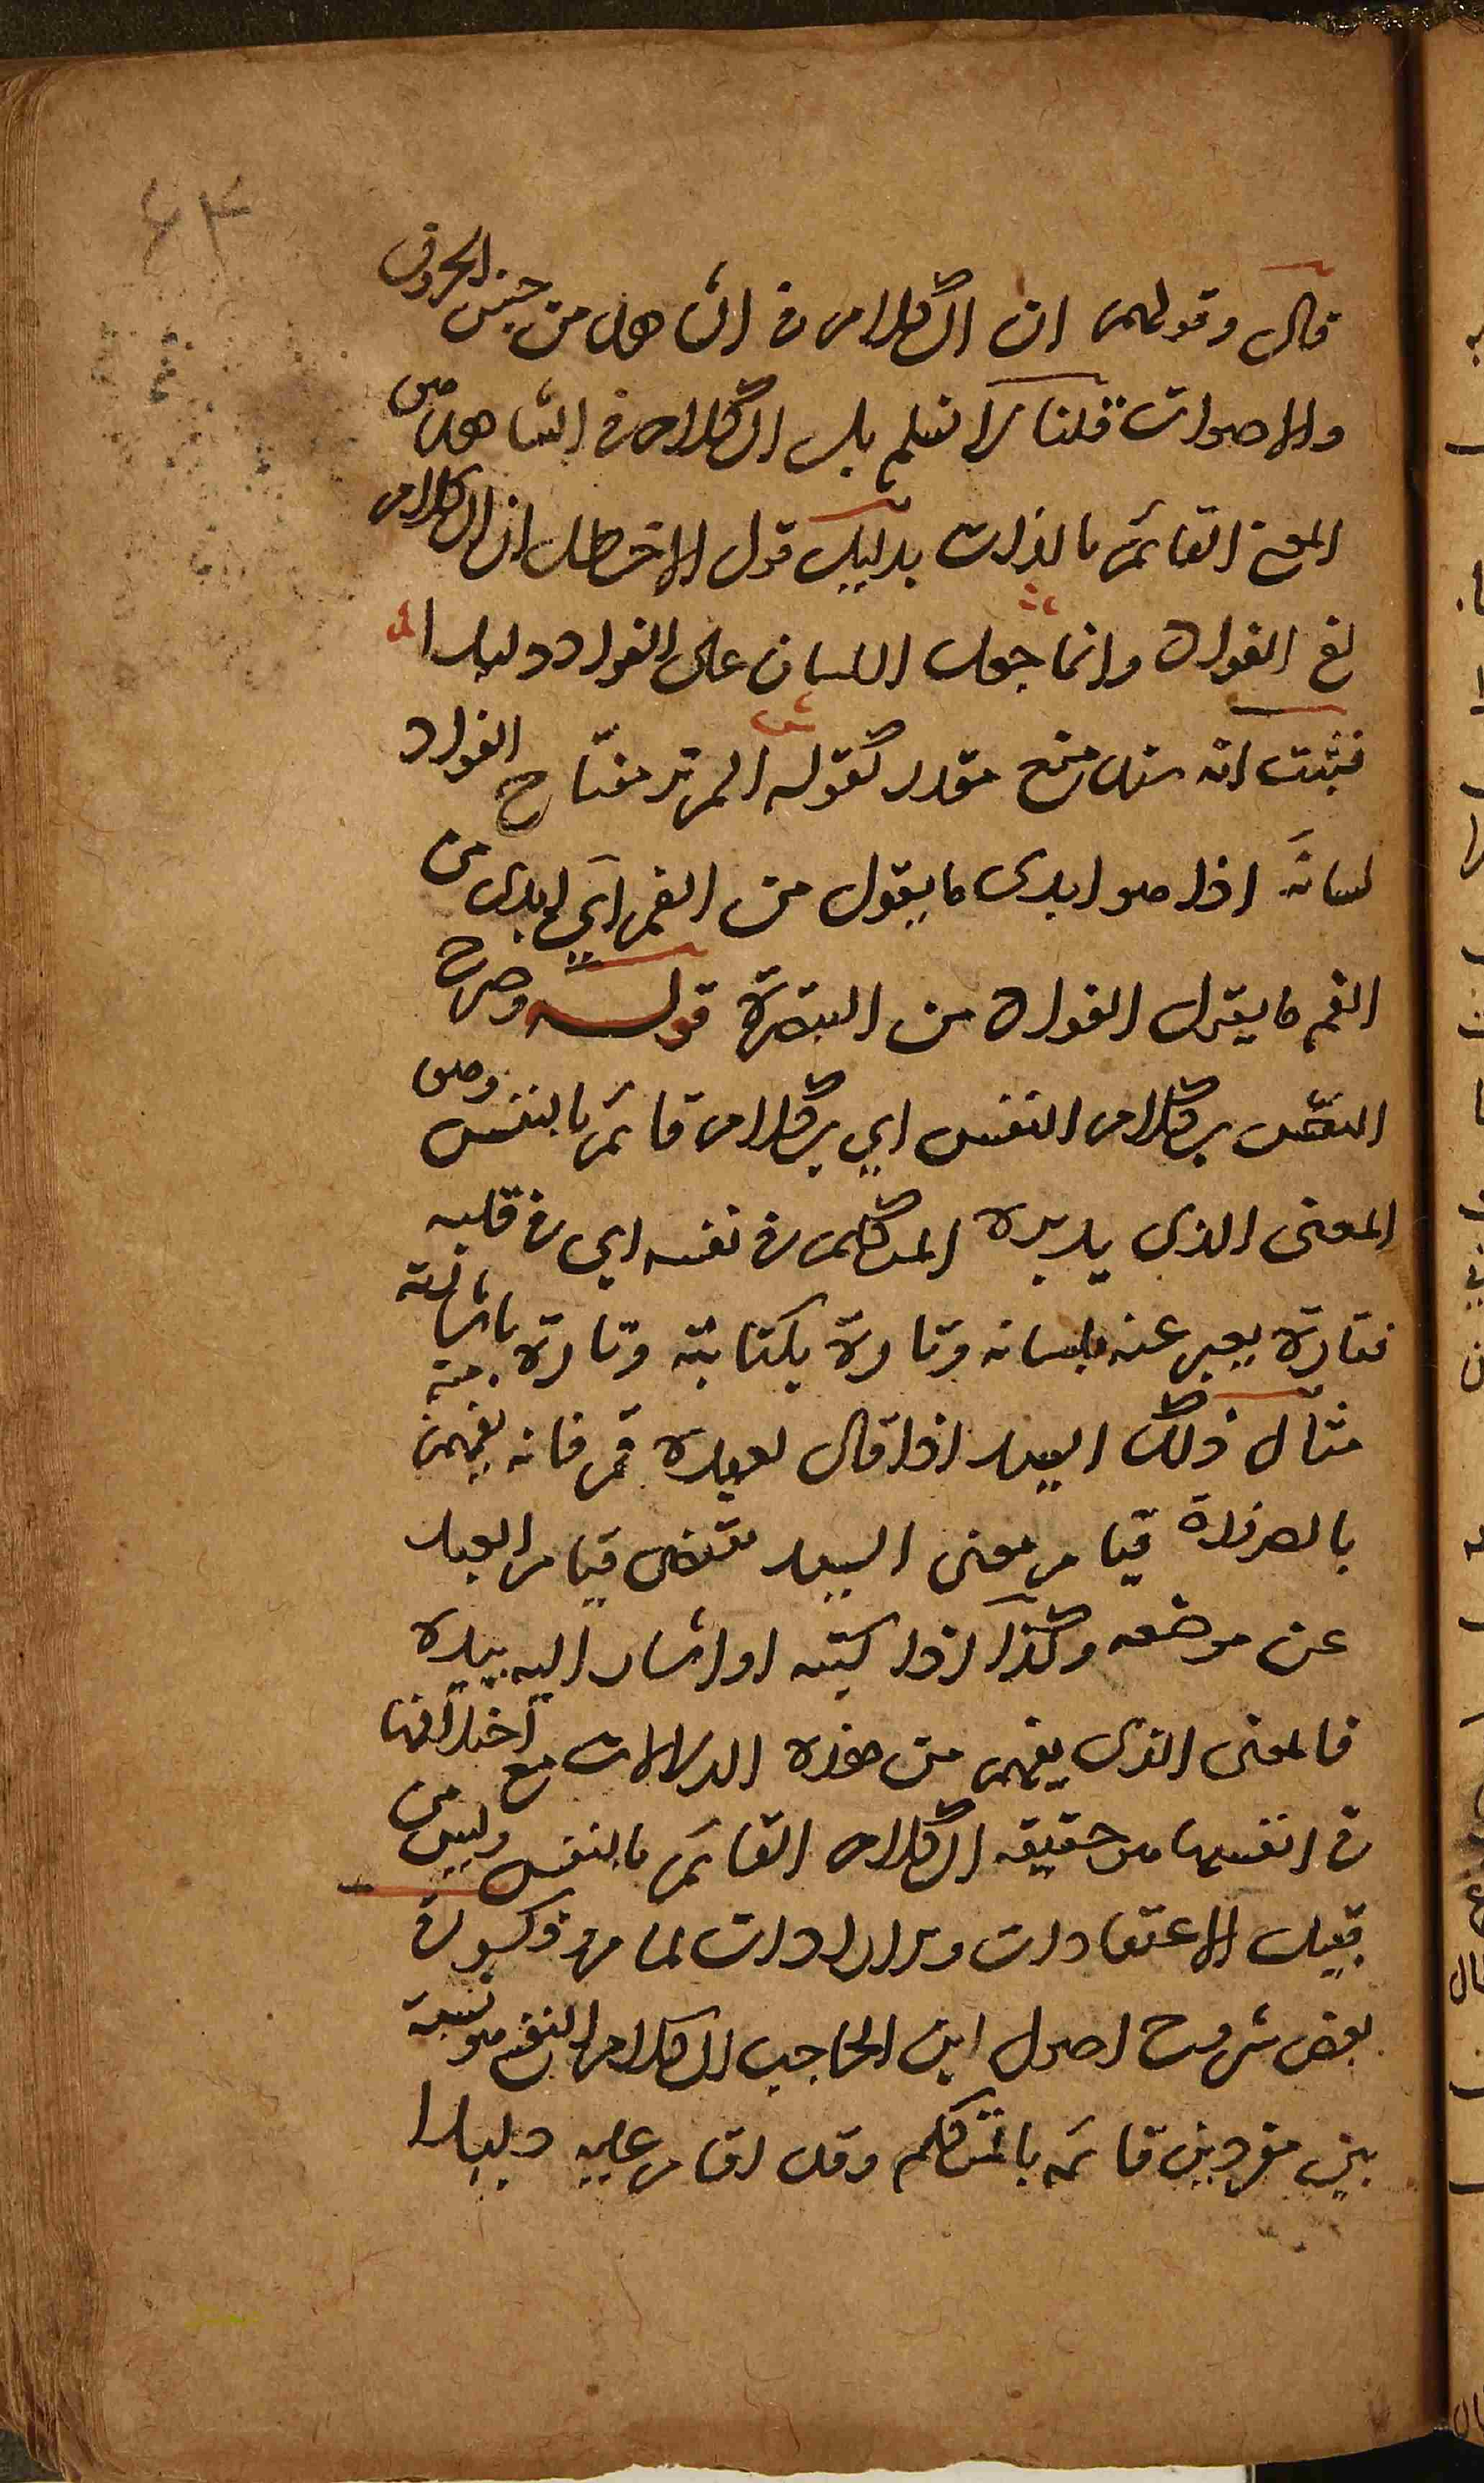 ٤٣
قال وقولهم ان الكلام في الشاهد من جنس الحروف
والاصوات قلنا لا نسلم بل الكلام في الشاهد هو
المعنى القائم بالذات بدليل قول الاخطل ان الكلام
لفي الفواد وانما جعل اللسان على الفواد دليلا
فثبت انه سند منع مقدر كقوله الم تر مفتاح الفواد
لسانه اذا هو ابدى ما يقول من الفم اي ابدى من
الفم ما يقول الفواد من التبصرة قوله وصرح
النص بكلام النفس اي بكلام قائم بالنفس وهو
المعنى الذي يدبره المتكلم في نفسه اي في قلبه
فتارة يعبر عنه بلسانه وتارة بكتابته وتارة باشارته
مثال ذلك السيد اذا قال لعبده قم فانه يفهم منه
بالضرورة قيام معنى السيد يقتضي قيام العبد
عن موضعه وكذا اذا كتبه او اشار اليه بيده
فالمعنى الذي يفهم من هذه الدلالات مع اختلافها
في انفسها هو حقيقه الكلام القائم بالنفس وليس من
قبيل الاعتقادات والارادات لما مر وذكر في
بعض شروح اصول ابن الحاجب الكلام النفسي هو نسبة
بين مفردين قائمه بالمتكلم وقد اقام عليه دليلا